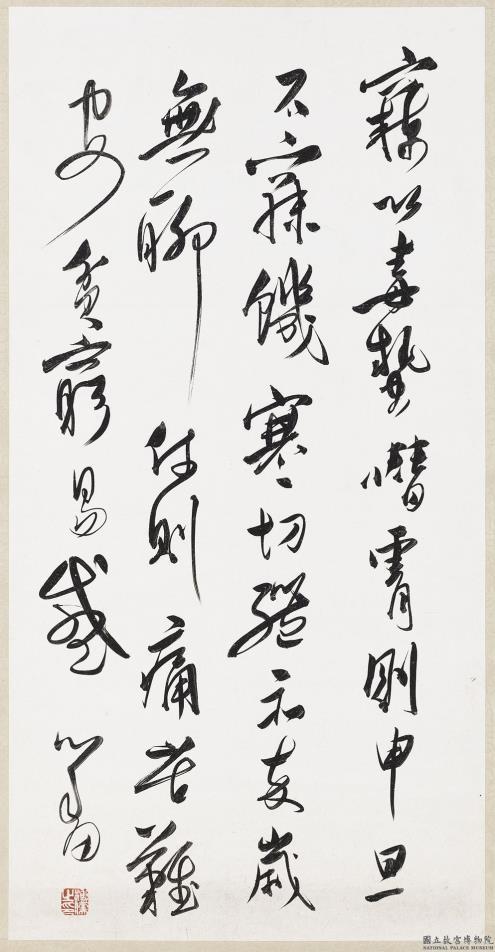 竊以毒螫憯膚則申旦
不寐饑寒切體而卒歲
無聊何則痛苦難
安貧窮易感 心畬
國立故宮博物院
NATIONAL PALACE MUSEUM